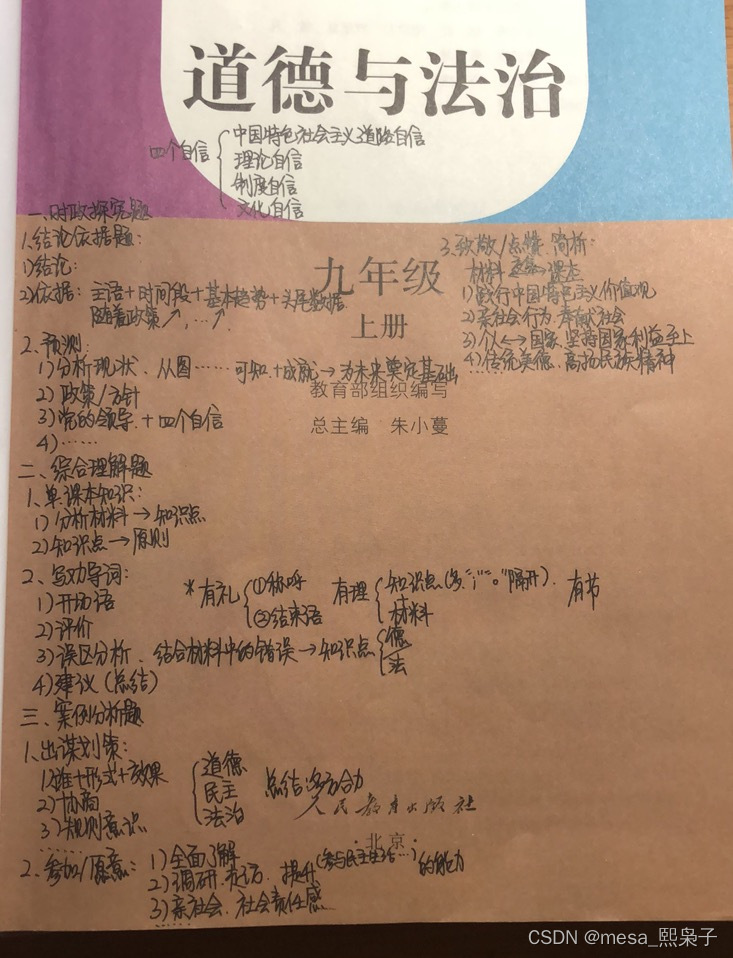 道德与法治
四个自信
中国特色社会主义道路自信
理论自信
制度自信
文化自信
一、时政探究题
1.结论依据题:
1)结论:
2)依据: 主语+时间段+基本趋势+头尾数据
随着政策↗,…↗
2.预测:
1)分析现状、从图……可知+成就→为未来奠定基础
2)政策/方针
3)党的领导.+四个自信
4)……
3.致敬/点赞、简析:
材料 课本
1)践行中国特色主义价值观
2)亲社会行为.奉献社会
3)个人↔国家.坚持国家利益至上
4)传统美德、高扬民族精神
九年级
上册
教育部组织编写
总主编 朱小蔓
二、综合理解题
1.单.课本知识:
1)分析材料→知识点
2)知识点→原则
2、写劝导词:
1)开场语
2)评价
3)误区分析、结合材料中的错误→知识点
德
法
4)建议(总结)
*有礼
①称呼
②结束语
有理
知识点(多.“;”“。”隔开).
材料
有节
三、案例分析题
1.出谋划策:
1)谁+形式+效果
2)协商
3)规则意识
……
道德
民主
法治
总结:多方合力
人民教育出版社
·北京·
2.参加/愿意:
1)全面了解
2)调研.走访.提升(参与民主生活…)的能力
3)亲社会、社会责任感
……
CSDN @mesa_熙枭子